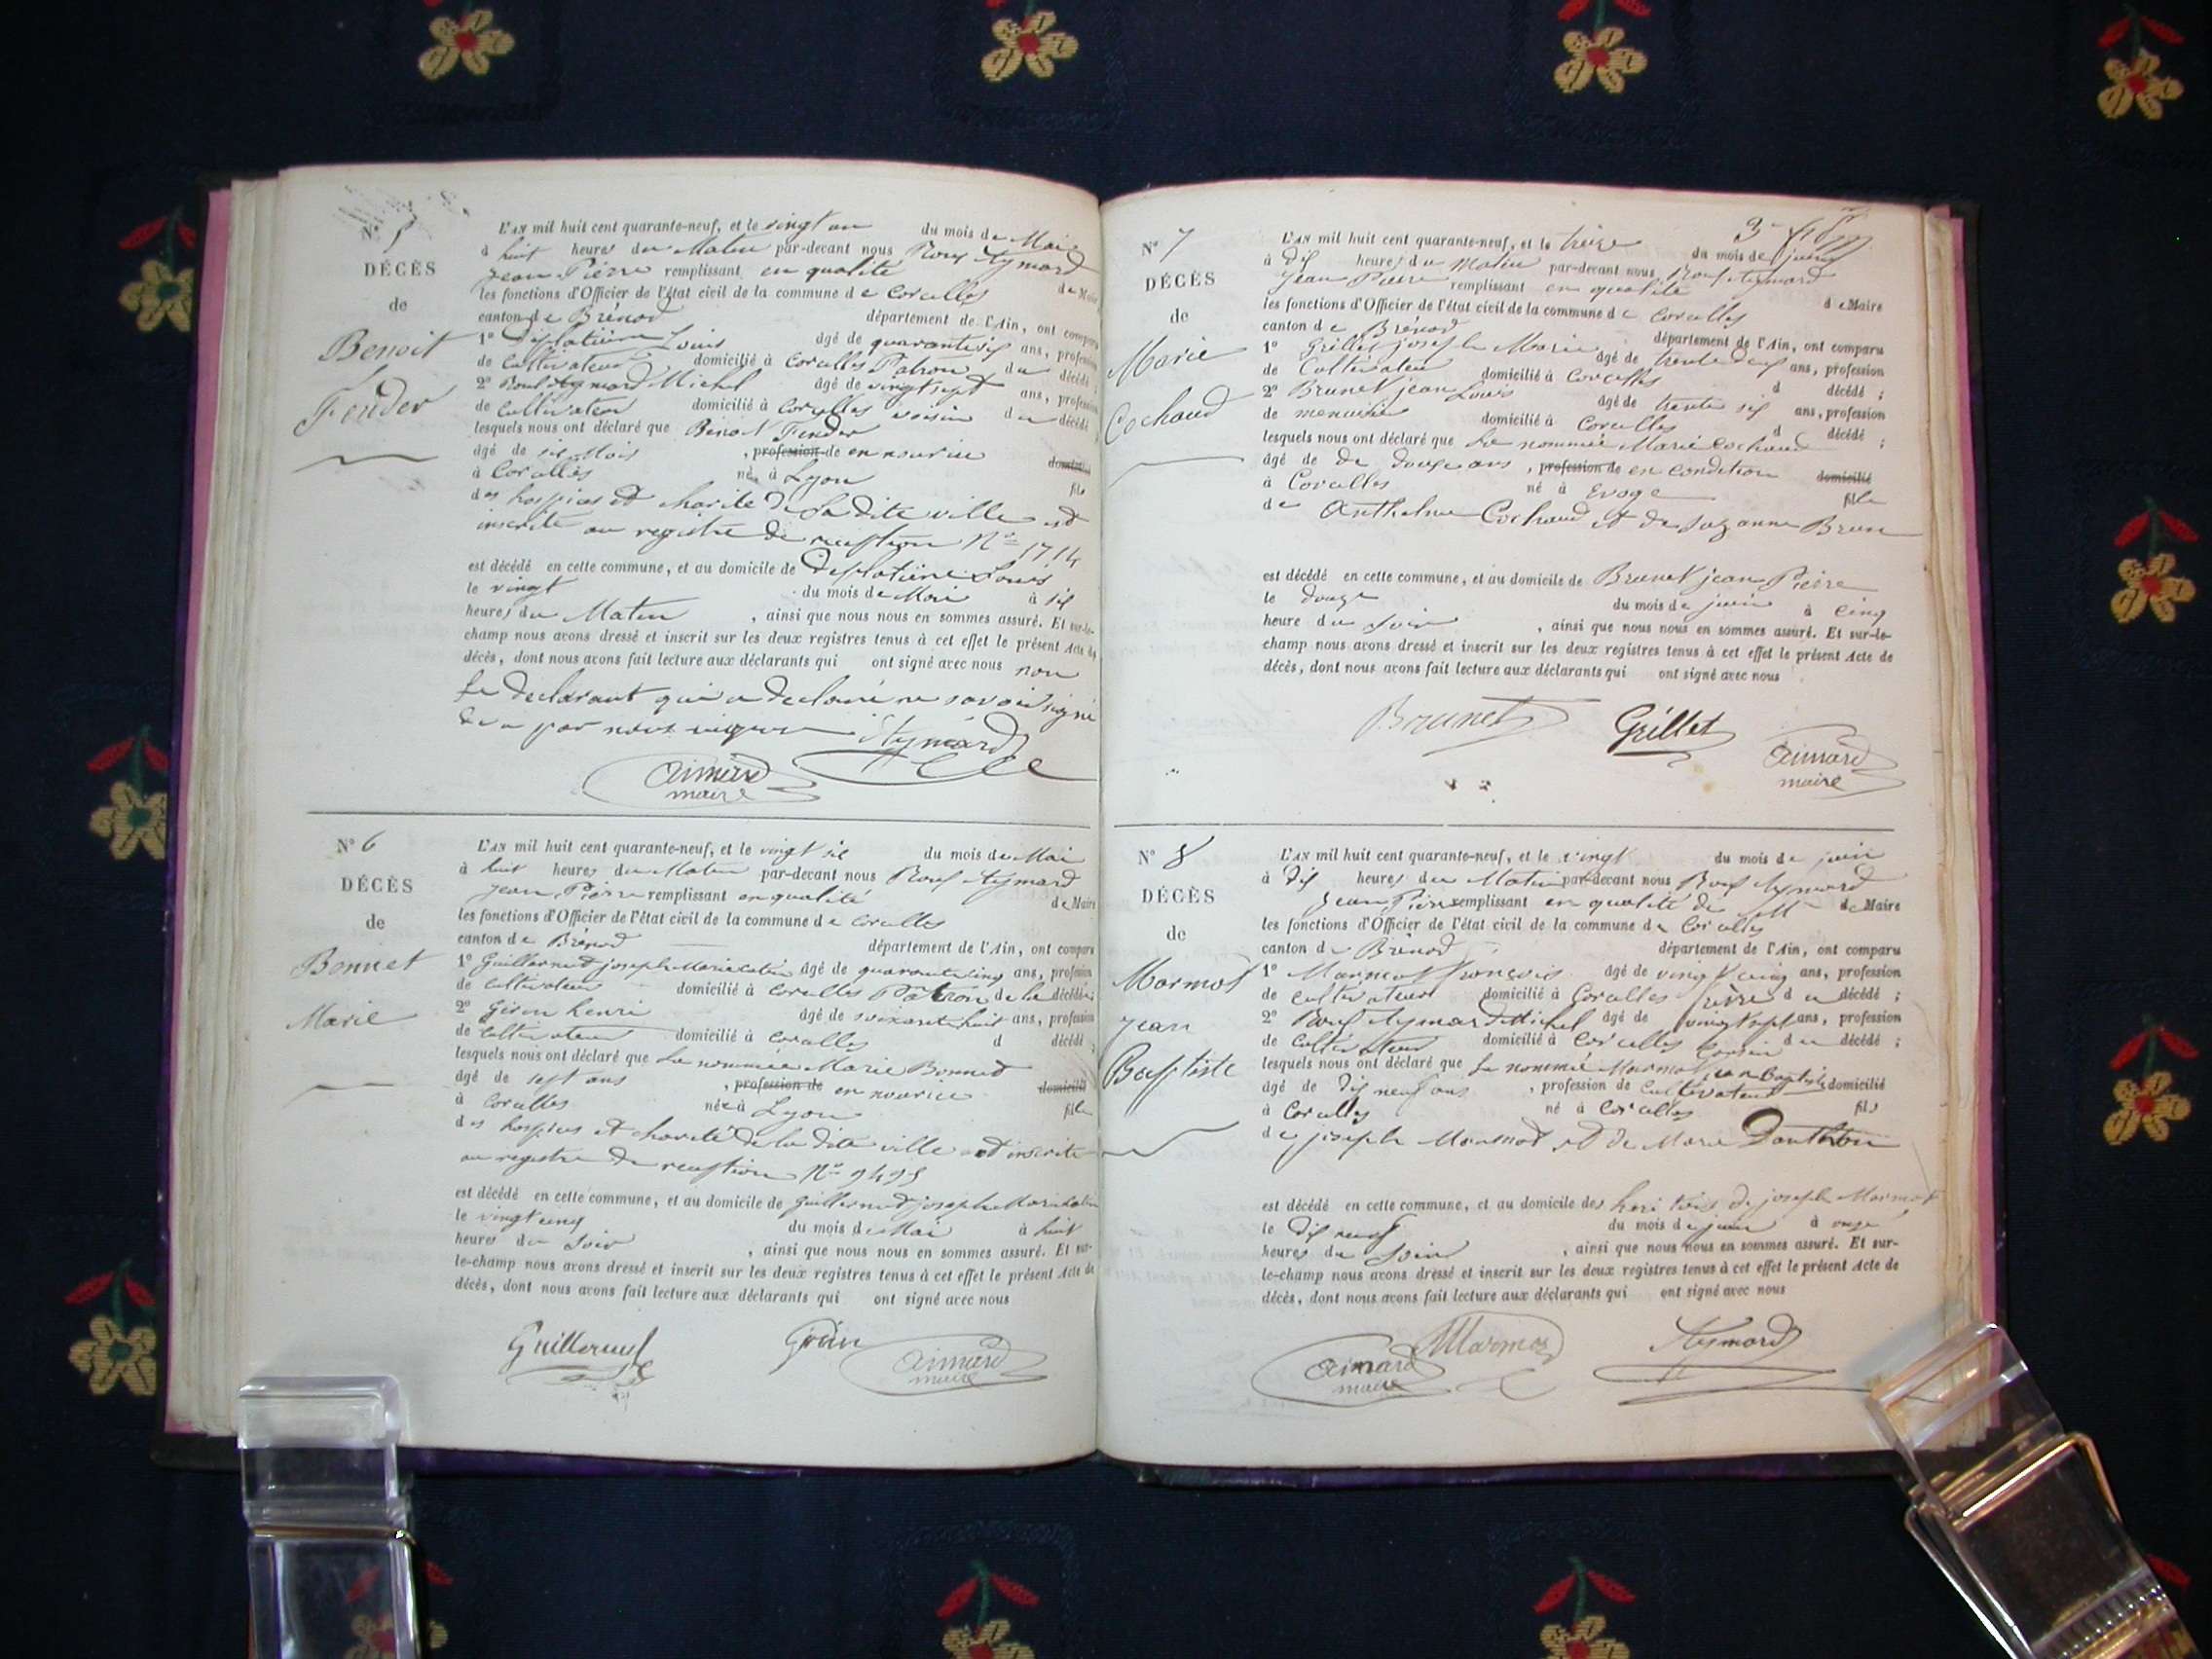 N° 5
DÉCÈS
de
Benoit
Feuder
L'AN mil huit cent quarante-neuf, et le vingt un du mois de Mai
à huit heures du Matin par-devant nous Roux Aymard
Jean Pierre remplissant en qualité de Maire
les fonctions d'Officier de l'état civil de la commune de Corcelles
canton de Brénod département de l'Ain, ont comparu
1° Desplatière Louis âgé de quarante six ans, profession
de Cultivateur domicilié à Corcelles Patron du décédé ;
2° Roux Aymard Michel âgé de vingt sept ans, profession
de Cultivateur domicilié à Corcelles voisin du décédé
lesquels nous ont déclaré que Benoit Feuder
âgé de six Mois , profession de en nourice domicilié
à Corcelles né à Lyon fils
des hospices et charité de la dite ville et
inscrite au registre de reception N° 1714
est décédé en cette commune, et au domicile de Desplatière Louis
le vingt du mois de Mai à six
heures du Matin , ainsi que nous nous en sommes assuré. Et sur-le-
champ nous avons dressé et inscrit sur les deux registres tenus à cet effet le présent Acte de
décès, dont nous avons fait lecture aux déclarants qui ont signé avec nous non
le declarant qui a declaré ne savoir signé
par nous Aymard
Aimard
maire
N° 6
DÉCÈS
de
Bonnet
Marie
L'AN mil huit cent quarante-neuf, et le vingt six du mois de Mai
à huit heures du Matin par-devant nous Roux Aymard
Jean Pierre remplissant en qualité de Maire
les fonctions d'Officier de l'état civil de la commune de Corcelles
canton de Brénod département de l'Ain, ont comparu
1° Guillermet joseph Marie âgé de quarante cinq ans, profession
de Cultivateur domicilié à Corcelles Patron de la décédée
2° Girin henri âgé de soixante huit ans, profession
de Cultivateur domicilié à Corcelles d décédé ;
lesquels nous ont déclaré que la nommée Marie Bonnet
âgé de sept ans , profession de en nourice domicilié
à Corcelles née à Lyon fille
des hospices et charité de la dite ville et inscrite
au registre de reception N° 9495
est décédé en cette commune, et au domicile de Guillermet joseph Marie
le vingt cinq du mois de Mai à huit
heures du Soir , ainsi que nous nous en sommes assuré. Et sur-
le-champ nous avons dressé et inscrit sur les deux registres tenus à cet effet le présent Acte de
décès, dont nous avons fait lecture aux déclarants qui ont signé avec nous
Guillermet Girin Aimard
maire
3e
N° 7
DÉCÈS
de
Marie
Cochaud
L'AN mil huit cent quarante-neuf, et le treize du mois de juin
à dix heures du Matin par-devant nous Roux Aymard
Jean Pierre remplissant en qualité de Maire
les fonctions d'Officier de l'état civil de la commune de Corcelles
canton de Brénod département de l'Ain, ont comparu
1° Grillet joseph Marie âgé de trente deux ans, profession
de Cultivateur domicilié à Corcelles d décédé ;
2° Brunet jean Louis âgé de trente six ans, profession
de menuisier domicilié à Corcelles d décédé ;
lesquels nous ont déclaré que la nommée Marie Cochaud
âgé de de douze ans , profession de en condition domicilié
à Corcelles né à Evoge fille
de Anthelme Cochaud et de Suzanne Brun
est décédé en cette commune, et au domicile de Brunet jean Pierre
le douze du mois de juin à cinq
heure du Soir , ainsi que nous nous en sommes assuré. Et sur-le-
champ nous avons dressé et inscrit sur les deux registres tenus à cet effet le présent Acte de
décès, dont nous avons fait lecture aux déclarants qui ont signé avec nous
Brunet Grillet Aimard
maire
N° 8
DÉCÈS
de
Marmot
Jean
Baptiste
L'AN mil huit cent quarante-neuf, et le vingt du mois de juin
à dix heures du Matin par-devant nous Roux Aymard
Jean Pierre remplissant en qualité de de Maire
les fonctions d'Officier de l'état civil de la commune de Corcelles
canton de Brénod département de l'Ain, ont comparu
1° Marmot François âgé de vingt cinq ans, profession
de cultivateur domicilié à Corcelles frère du décédé ;
2° Roux Aymard Michel âgé de vingt sept ans, profession
de Cultivateur domicilié à Corcelles cousin du décédé ;
lesquels nous ont déclaré que le nommé Marmot jean Baptiste
âgé de dix neuf ans , profession de Cultivateur domicilié
à Corcelles né à Corcelles fils
de joseph Marmot et de Marie Donthion
est décédé en cette commune, et au domicile des heri tiers de joseph Marmot
le dix neuf du mois de juin à onze
heures du Soir , ainsi que nous nous en sommes assuré. Et sur-
le-champ nous avons dressé et inscrit sur les deux registres tenus à cet effet le présent Acte de
décès, dont nous avons fait lecture aux déclarants qui ont signé avec nous
Aimard Marmot Aymard
maire